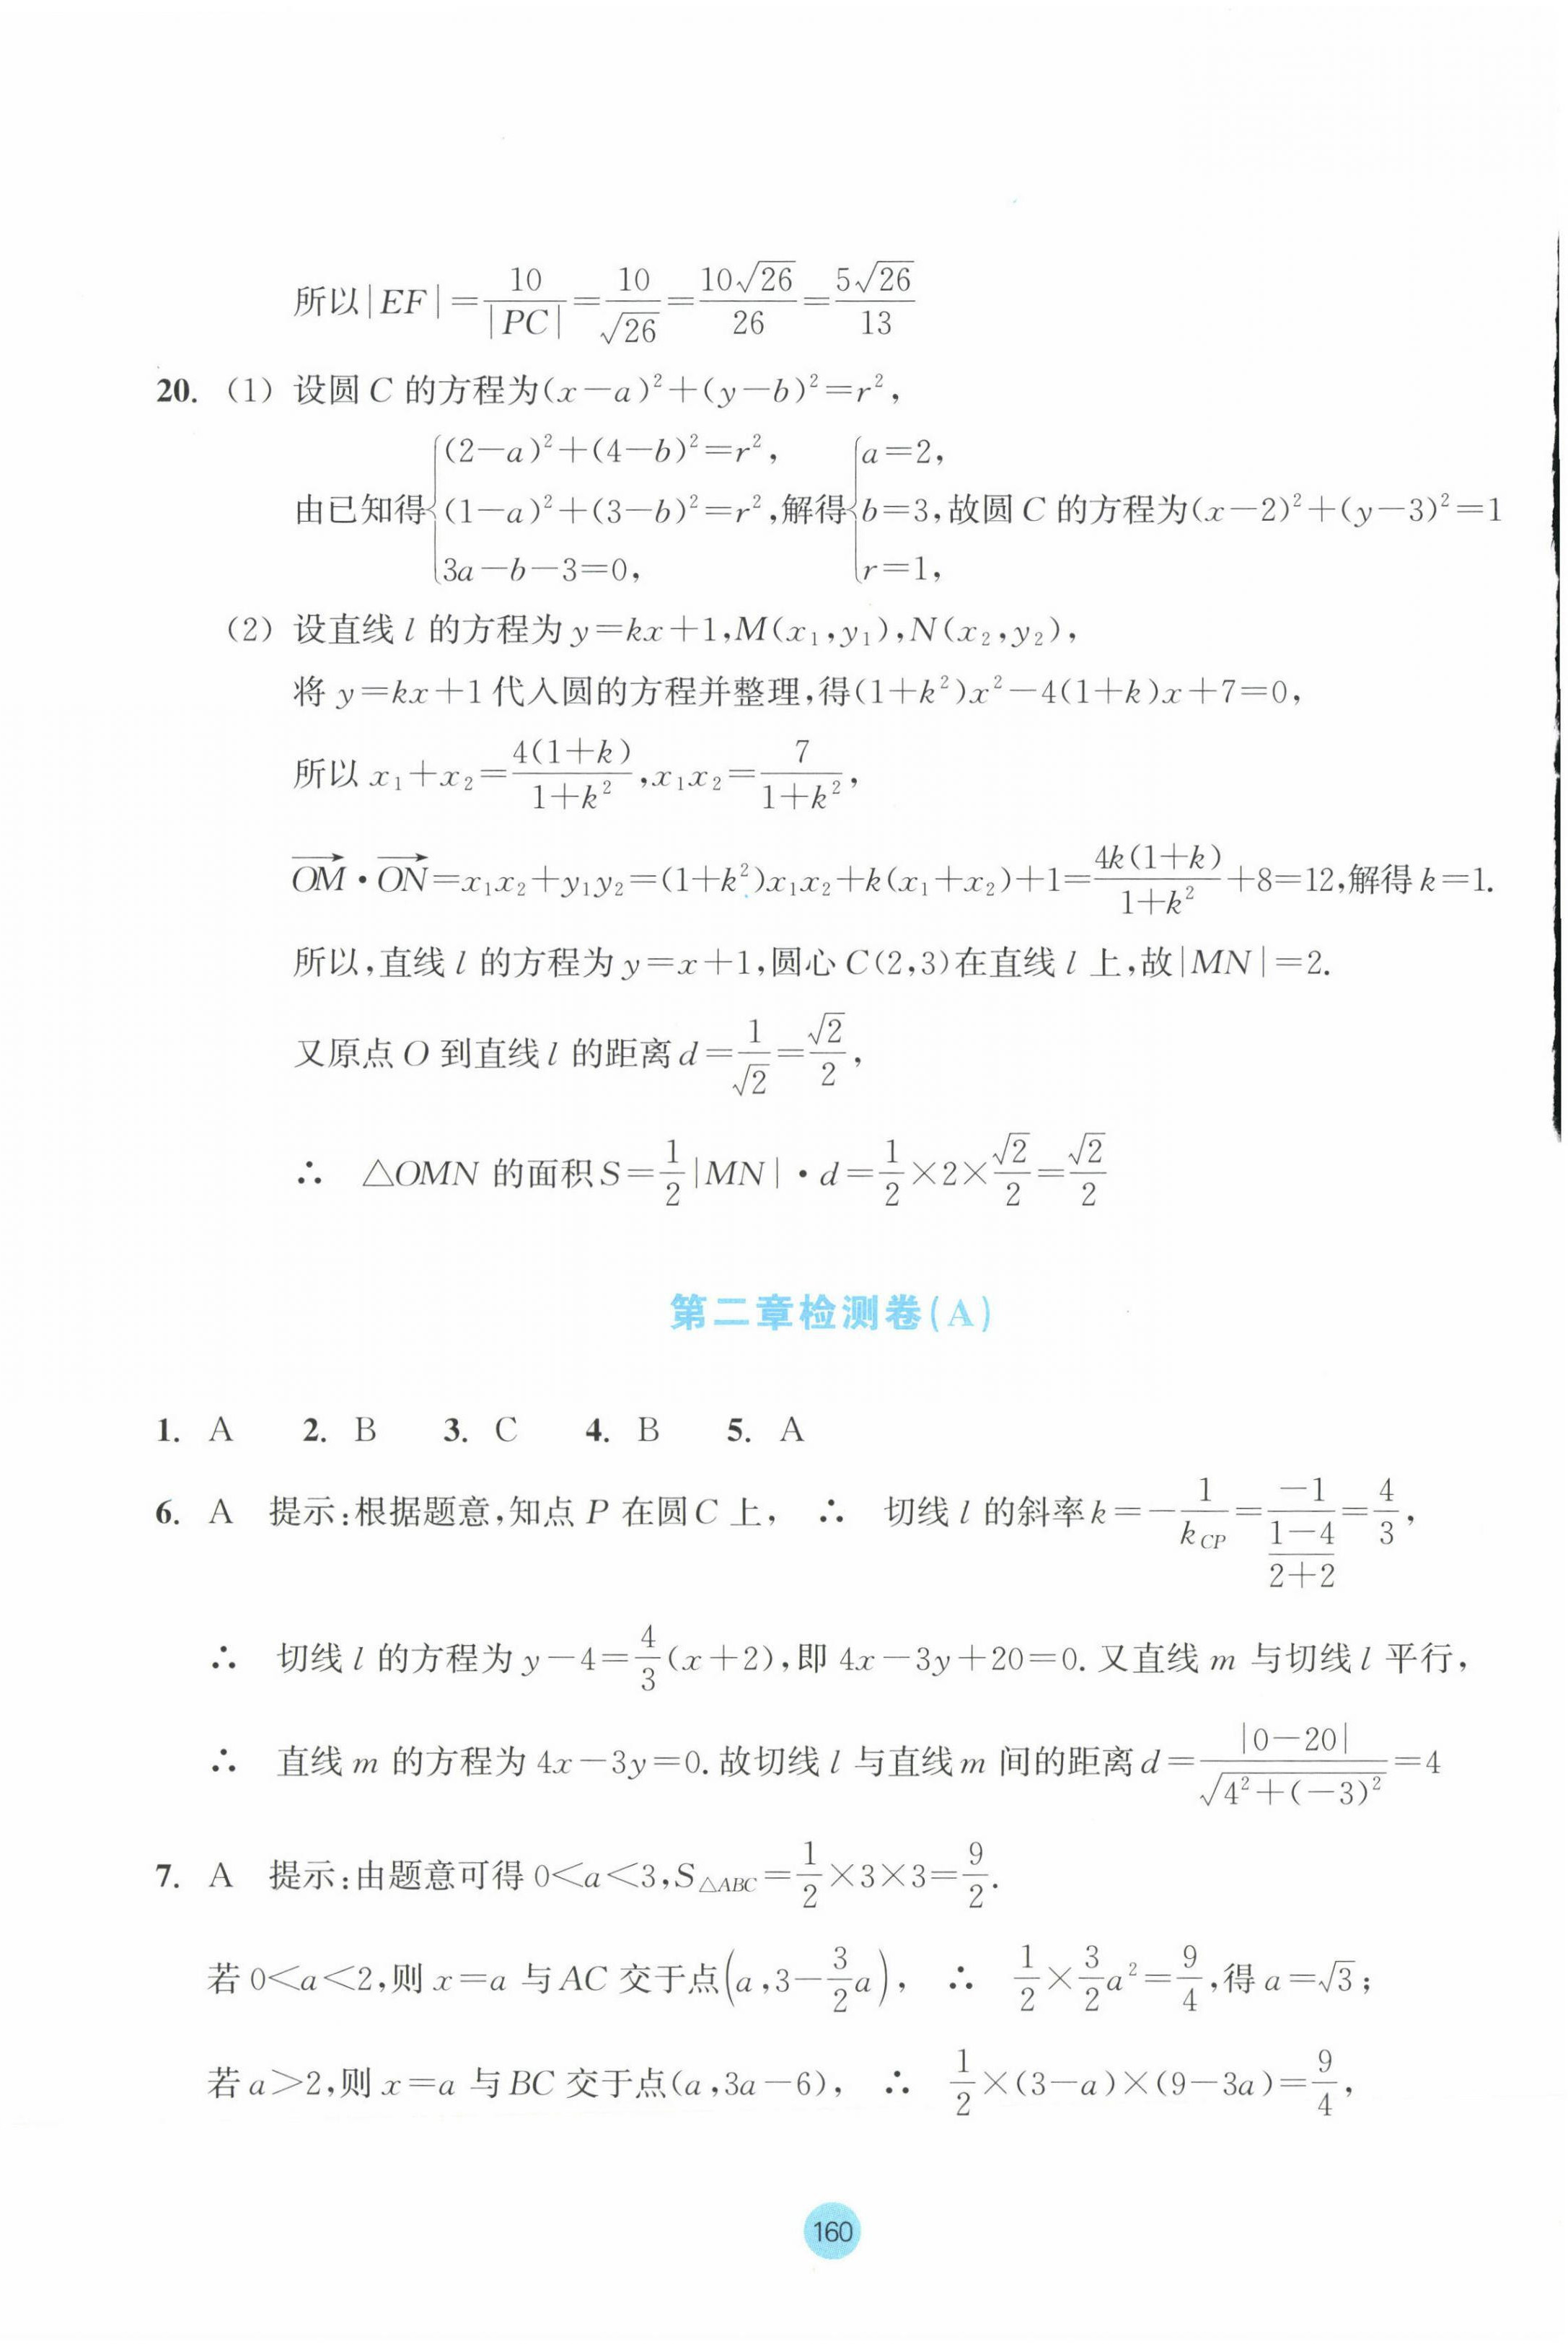 所以|EF|=\frac{10}{|PC|}=\frac{10}{\sqrt{26}}=\frac{10\sqrt{26}}{26}=\frac{5\sqrt{26}}{13}
20. (1) 设圆 C 的方程为(x-a)^2+(y-b)^2=r^2,
由已知得\begin{cases}(2-a)^2+(4-b)^2=r^2,\\(1-a)^2+(3-b)^2=r^2,\\3a-b-3=0,\end{cases}解得\begin{cases}a=2,\\b=3,\\r=1,\end{cases}故圆 C 的方程为(x-2)^2+(y-3)^2=1
(2) 设直线 l 的方程为 y=kx+1,M(x_1,y_1),N(x_2,y_2),
将 y=kx+1 代入圆的方程并整理,得(1+k^2)x^2-4(1+k)x+7=0,
所以 x_1+x_2=\frac{4(1+k)}{1+k^2},x_1x_2=\frac{7}{1+k^2},
\overrightarrow{OM}·\overrightarrow{ON}=x_1x_2+y_1y_2=(1+k^2)x_1x_2+k(x_1+x_2)+1=\frac{4k(1+k)}{1+k^2}+8=12,解得 k=1.
所以,直线 l 的方程为 y=x+1,圆心 C(2,3)在直线 l 上,故|MN|=2.
又原点 O 到直线 l 的距离 d=\frac{1}{\sqrt{2}}=\frac{\sqrt{2}}{2},
∴ △OMN 的面积 S=\frac{1}{2}|MN|·d=\frac{1}{2}×2×\frac{\sqrt{2}}{2}=\frac{\sqrt{2}}{2}
第二章检测卷(A)
1. A 2. B 3. C 4. B 5. A
6. A 提示:根据题意,知点 P 在圆 C 上, ∴ 切线 l 的斜率 k=-\frac{1}{k_{CP}}=\frac{-1}{\frac{1-4}{2+2}}=\frac{4}{3},
∴ 切线 l 的方程为 y-4=\frac{4}{3}(x+2),即 4x-3y+20=0. 又直线 m 与切线 l 平行,
∴ 直线 m 的方程为 4x-3y=0. 故切线 l 与直线 m 间的距离 d=\frac{|0-20|}{\sqrt{4^2+(-3)^2}}=4
7. A 提示:由题意可得 0<a<3,S_{△ABC}=\frac{1}{2}×3×3=\frac{9}{2}.
若 0<a<2,则 x=a 与 AC 交于点(a,3-\frac{3}{2}a), ∴ \frac{1}{2}×\frac{3}{2}a^2=\frac{9}{4},得 a=\sqrt{3};
若 a>2,则 x=a 与 BC 交于点(a,3a-6), ∴ \frac{1}{2}×(3-a)×(9-3a)=\frac{9}{4},
160